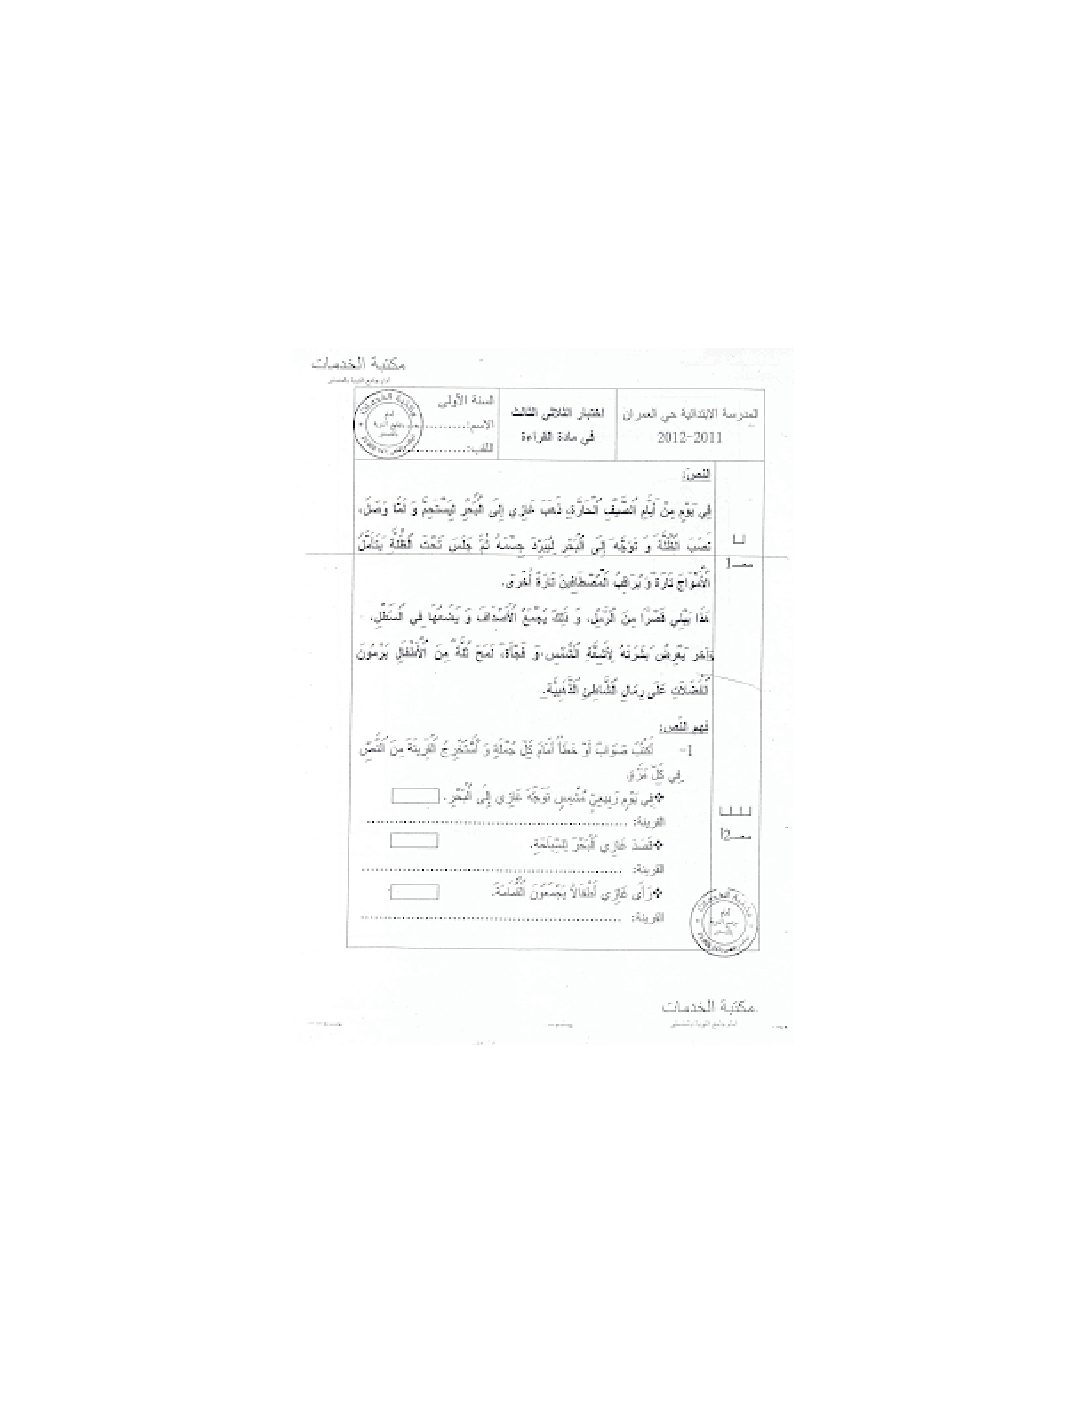 مكتبة الخدمات
المدرسة الابتدائية حي العمران
2012-2011
اختبار الثلاثي الثالث
في مادة القراءة
السنة الأولى
الاسم:
اللقب:
النص:
فِي يَوْمٍ مِنْ أَيَّامِ الصَّيْفِ الْحَارَّةِ، ذَهَبَ غَازِي إِلَى الْبَحْرِ لِيَسْتَحِمَّ وَ لَمَّا وَصَلَ،
نَصَبَ الظُّلَّةَ وَ تَوَجَّهَ إِلَى الْبَحْرِ لِيُبَرِّدَ جِسْمَهُ ثُمَّ جَلَسَ تَحْتَ الظُّلَّةِ يَتَأَمَّلُ
الْأَمْوَاجَ تَارَةً وَ يُرَاقِبُ الْمُصْطَافِينَ تَارَةً أُخْرَى.
هَذَا يَبْنِي قَصْرًا مِنَ الرَّمْلِ، وَ ذَلِكَ يَجْمَعُ الْأَصْدَافَ وَ يَضَعُهَا فِي السَّطْلِ،
وَآخَر يُعَرِّضُ بَشَرَتَهُ لِأَشِعَّةِ الشَّمْسِ، وَ فَجْأَةً، لَمَحَ ثُلَّةً مِنَ الْأَطْفَالِ يَرْمُونَ
الْفَضَلَاتِ عَلَى رِمَالِ الشَّاطِئِ الذَّهَبِيَّةِ.
فهم النص:
1- أَكْتُبُ صَوَابٌ أَوْ خَطَأٌ أَمَامَ كُلِّ جُمْلَةٍ وَ أَسْتَخْرِجُ الْقَرِينَةَ مِنَ النَّصِّ
فِي كُلِّ مَرَّةٍ
❖فِي يَوْمٍ رَبِيعِيٍّ مُشْمِسٍ تَوَجَّهَ غَازِي إِلَى الْبَحْرِ.
القرينة:
❖قَصَدَ غَازِي الْبَحْرَ لِلسِّبَاحَةِ.
القرينة:
❖رَأَى غَازِي أَطْفَالاً يَجْمَعُونَ الْقُمَامَةَ.
القرينة:
مـعـ1
مـعـ2
مكتبة الخدمات